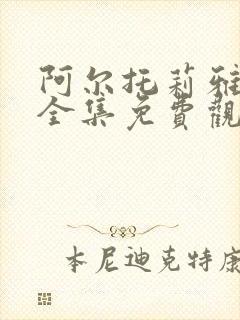 阿尔托莉雅
全集免費觀
本尼迪克特康